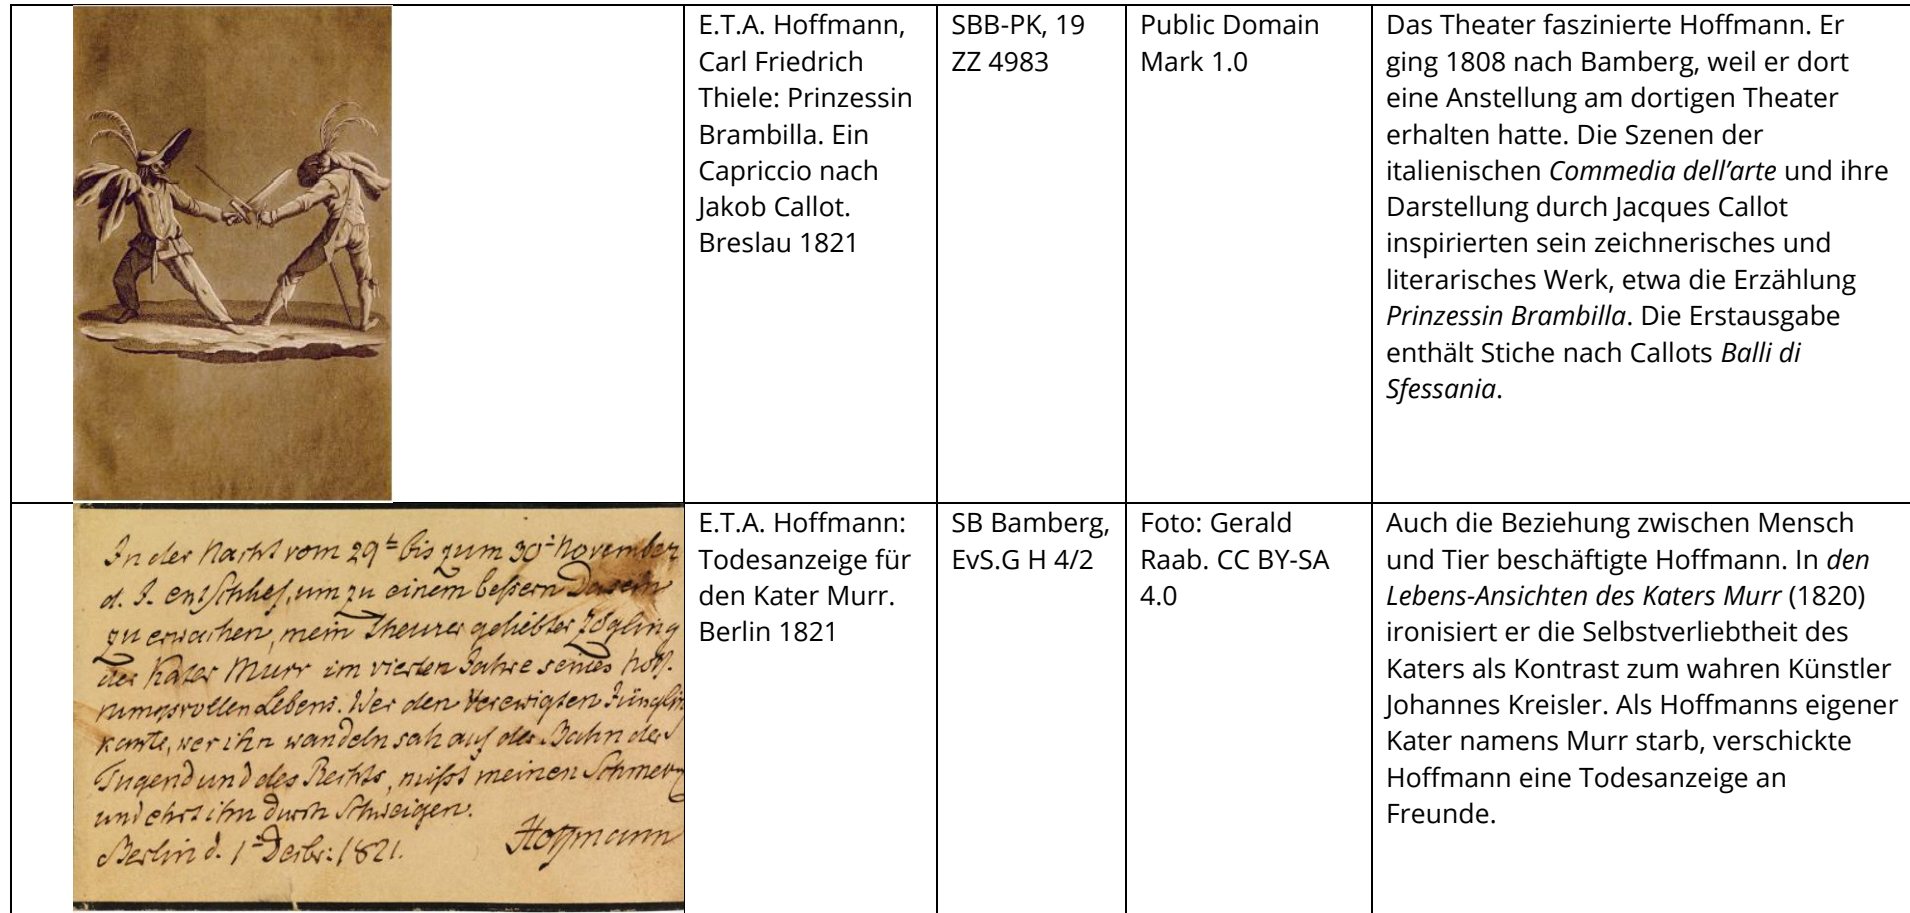 E.T.A. Hoffmann,
Carl Friedrich
Thiele: Prinzessin
Brambilla. Ein
Capriccio nach
Jakob Callot.
Breslau 1821
SBB-PK, 19
ZZ 4983
Public Domain
Mark 1.0
Das Theater faszinierte Hoffmann. Er
ging 1808 nach Bamberg, weil er dort
eine Anstellung am dortigen Theater
erhalten hatte. Die Szenen der
italienischen Commedia dell’arte und ihre
Darstellung durch Jacques Callot
inspirierten sein zeichnerisches und
literarisches Werk, etwa die Erzählung
Prinzessin Brambilla. Die Erstausgabe
enthält Stiche nach Callots Balli di
Sfessania.
In der Nacht vom 29t bis zum 30t November
d. J. entschlief, um zu einem bessern Dasein
zu erwachen, mein theurer geliebter Zögling
der Kater Murr im vierten Jahre seines hoff-
nungsvollen Lebens. Wer den verewigten Jüngling
kannte, wer ihn wandeln sah auf der Bahn der
Tugend und des Rechts, mißt meinen Schmerz
und ehrt ihn durch Schweigen.
Berlin d. 1t Decbr: 1821.
Hoffmann
E.T.A. Hoffmann:
Todesanzeige für
den Kater Murr.
Berlin 1821
SB Bamberg,
EvS.G H 4/2
Foto: Gerald
Raab. CC BY-SA
4.0
Auch die Beziehung zwischen Mensch
und Tier beschäftigte Hoffmann. In den
Lebens-Ansichten des Katers Murr (1820)
ironisiert er die Selbstverliebtheit des
Katers als Kontrast zum wahren Künstler
Johannes Kreisler. Als Hoffmanns eigener
Kater namens Murr starb, verschickte
Hoffmann eine Todesanzeige an
Freunde.